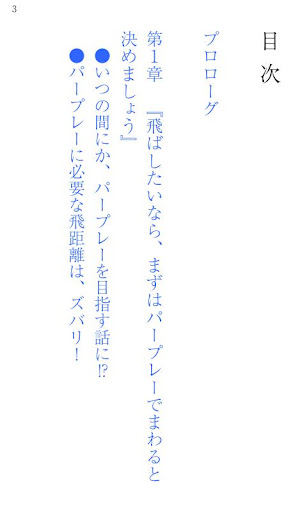 3
目次
プロローグ
第1章　『飛ばしたいなら、まずはパープレーでまわると
決めましょう』
●いつの間にか、パープレーを目指す話に!?
●パープレーに必要な飛距離は、ズバリ！